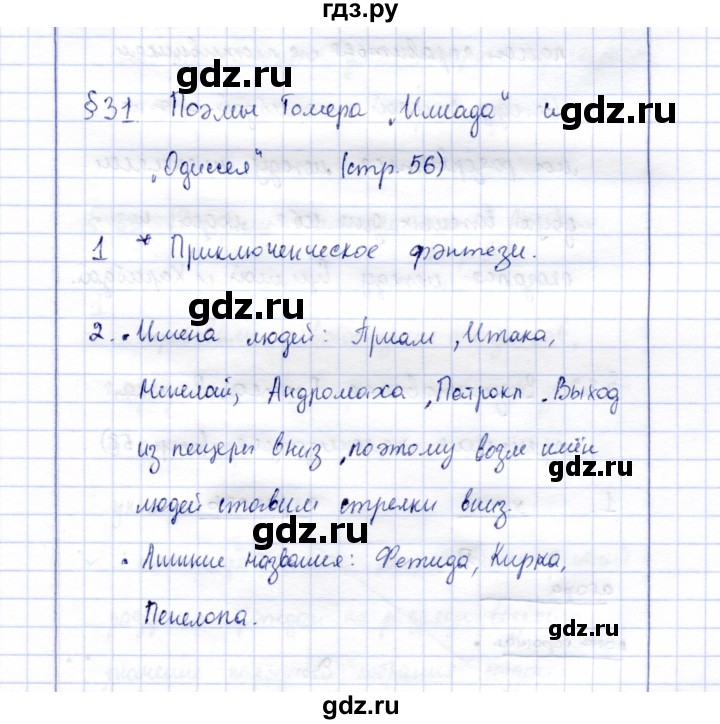 гдз.ру
gdz.ru
§31 Поэмы Гомера „Илиада" и
„Одиссея" (стр. 56)
1 * Приключенческое фэнтези.
gdz.ru
2. • Имена людей: Приам, Итака,
Менелай, Андромаха, Патрокл. Выход
из пещеры вниз, поэтому возле имён
gdz.ru
людей ставим стрелки вниз.
gdz.ru
• Лишние названия: Фетида, Кирка,
Пенелопа.
gdz.ru
gdz.ru